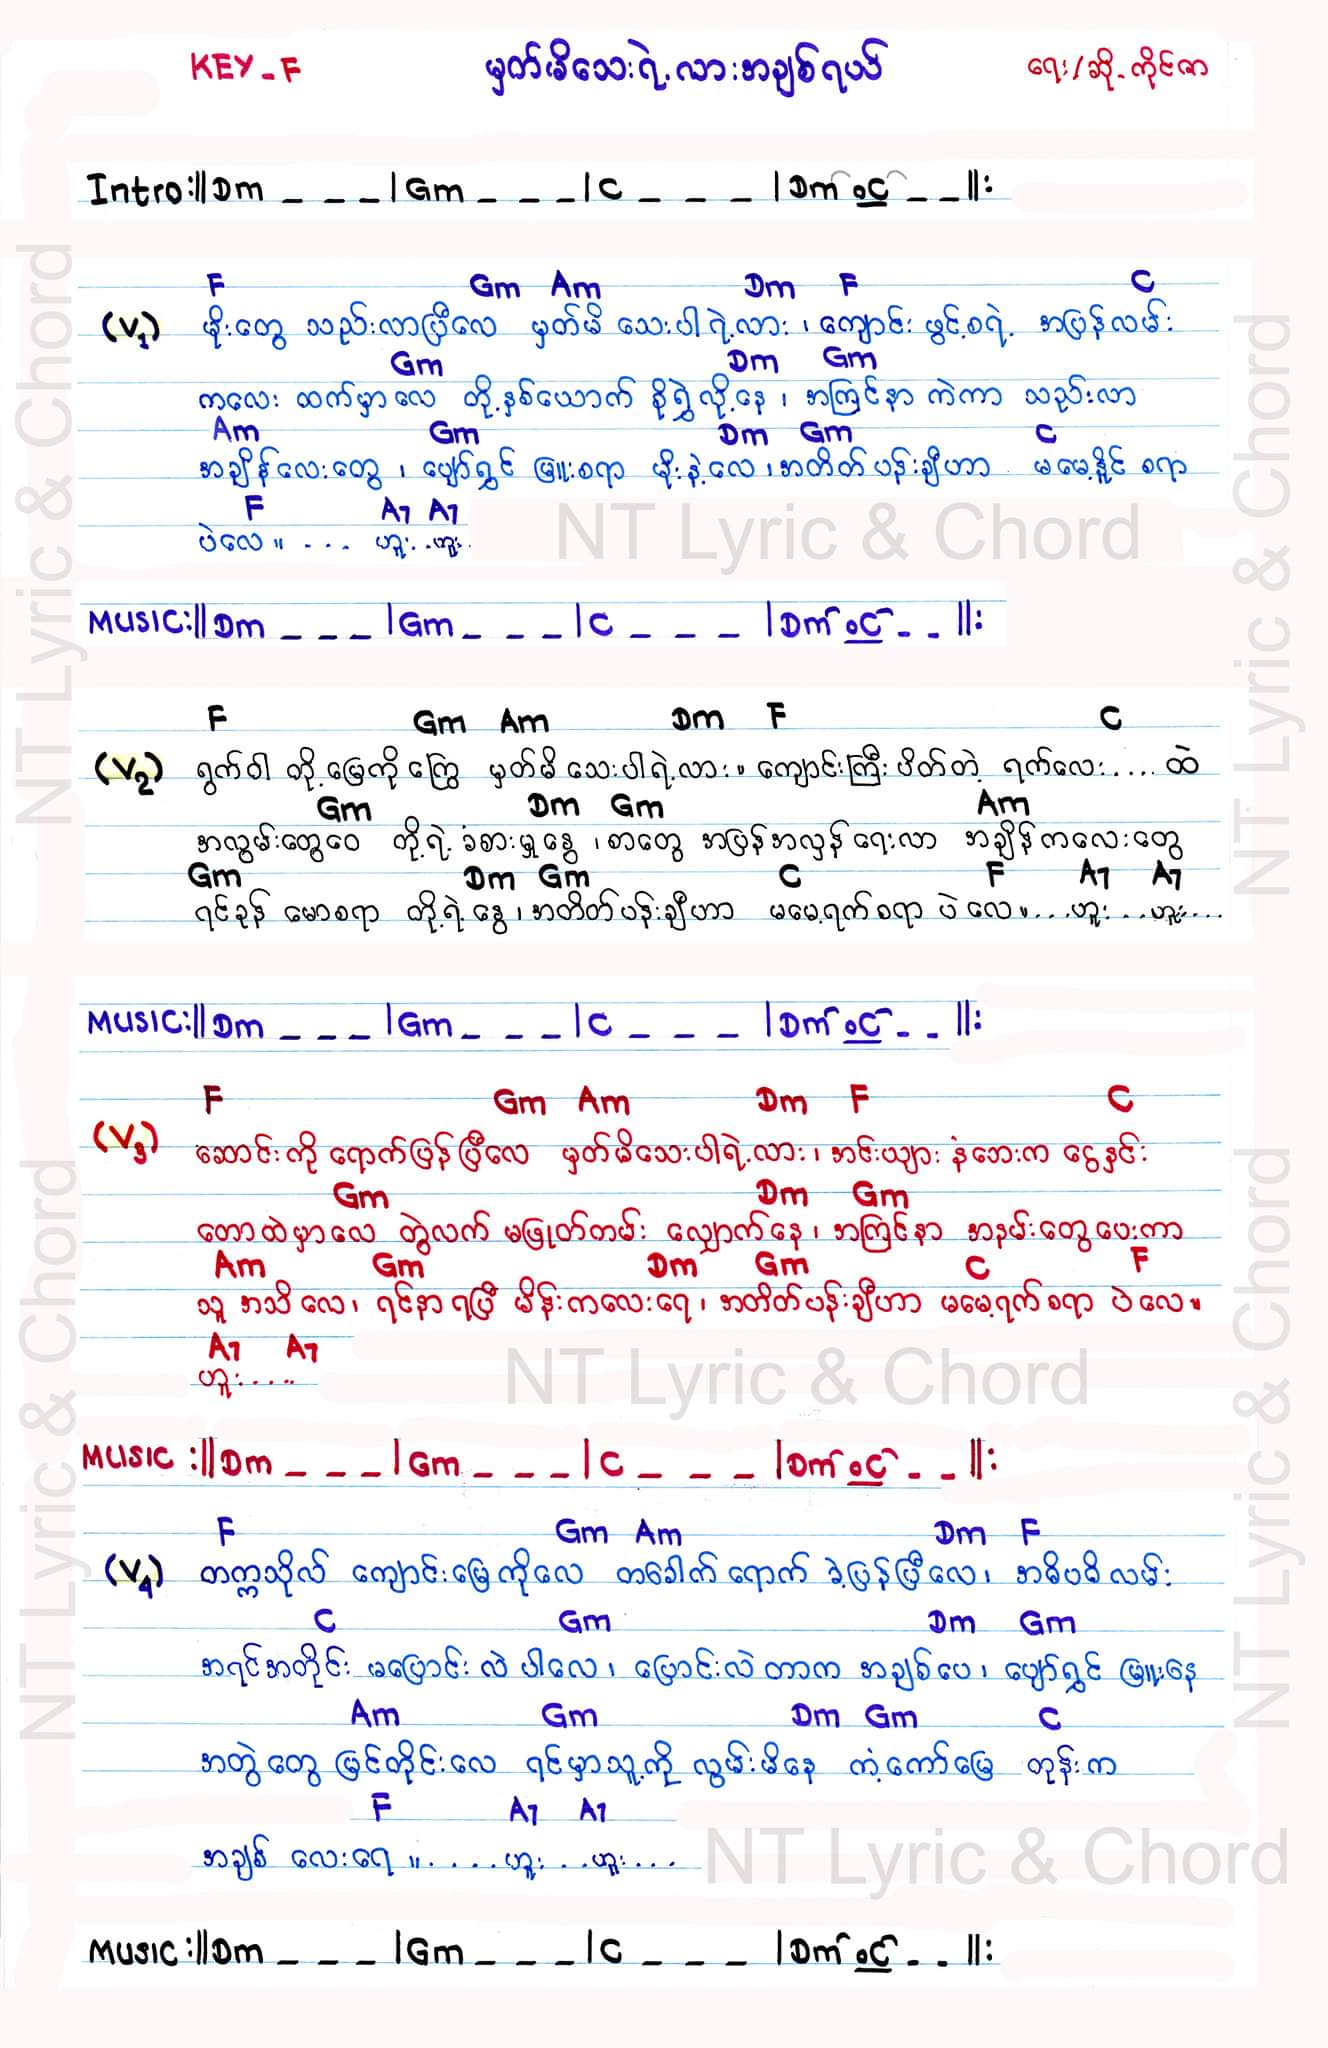 KEY - F မှတ်မိသေးရဲ့လားအချစ်ရယ် ရေး/ဆို - ကိုင်ဇာ
Intro:||Dm _ _ _ |Gm _ _ _ |C _ _ _ |Dm oC _ _ ||:
F Gm Am Dm F C
(V1) မိုးတွေ သည်းလာပြီလေ မှတ်မိ သေးပါရဲ့လား ၊ ကျောင်း ဖွင့်စရဲ့ အပြန်လမ်း
Gm Dm Gm
ကလေး ထက်မှာလေ တို့နှစ်ယောက် စိုရွှဲလို့နေ ၊ အကြင်နာ ကဲကာ သည်းလာ
Am Gm Dm Gm C
အချိန်လေးတွေ ၊ ပျော်ရွှင် မြူးစရာ မိုးနဲ့လေ ၊ အတိတ်ပန်းချီဟာ မမေ့နိုင် စရာ
F A7 A7
ပဲလေ ။ . . . ဟူး . . ဟူး .
MUSIC:||Dm _ _ _ |Gm _ _ _ |C _ _ _ |Dm oC - - ||:
F Gm Am Dm F C
(V2) ရွက်ဝါ တို့မြေကိုကြွေ မှတ်မိသေးပါရဲ့လား ။ ကျောင်းကြီးပိတ်တဲ့ ရက်လေး .... ထဲ
Gm Dm Gm Am
အလွမ်းတွေဝေ တို့ရဲ့ ခံစားမှုနွေ ၊ စာတွေ အပြန်အလှန်ရေးလာ အချိန်ကလေးတွေ
Gm Dm Gm C F A7 A7
ရင်ခုန် မောစရာ တို့ရဲ့နွေ ၊ အတိတ်ပန်းချီဟာ မမေ့ရက်စရာ ပဲ လေ ။ . . . ဟူး . . . ဟူး . . . .
MUSIC:||Dm _ _ _ |Gm _ _ _ |C _ _ _ |Dm oC - - ||:
F Gm Am Dm F C
(V3) ဆောင်းကို ရောက်ပြန်ပြီလေ မှတ်မိသေးပါရဲ့လား ၊ အင်းယျား နံဘေးက ငွေနှင်း
Gm Dm Gm
တောထဲမှာလေ တွဲလက် မဖြုတ်တမ်း လျှောက်နေ ၊ အကြင်နာ အနမ်းတွေပေးကာ
Am Gm Dm Gm C F
သူ အသိ လေ ၊ ရင်နာရပြီ မိန်းကလေးရေ ၊ အတိတ်ပန်းချီဟာ မမေ့ရက်စရာ ပဲလေ ။
A7 A7
ဟူး . . . . .
MUSIC :||Dm _ _ _ |Gm _ _ _ |C _ _ _ |Dm oC - - ||:
F Gm Am Dm F
(V4) တက္ကသိုလ် ကျောင်းမြေကိုလေ တခေါက်ရောက် ခဲ့ပြန်ပြီလေ ၊ အဓိပဓိလမ်း
C Gm Dm Gm
အရင်အတိုင်း မပြောင်းလဲ ပါလေ ၊ ပြောင်းလဲတာက အချစ်ပေ ၊ ပျော်ရွှင် မြူးနေ
Am Gm Dm Gm C
အတွဲတွေ မြင်တိုင်းလေ ရင်မှာသူ့ကို လွမ်းမိနေ ကံ့ကော်မြေ တုန်းက
F A7 A7
အချစ် လေးရေ ။ . . . . . ဟူး . . . ဟူး . . .
MUSIC:||Dm _ _ _ |Gm _ _ _ |C _ _ _ |Dm oC - - ||:
NT Lyric & Chord
NT Lyric & Chord
NT Lyric & Chord
NT Lyric & Chord
NT Lyric & Chord
NT Lyric & Chord
NT Lyric & Chord